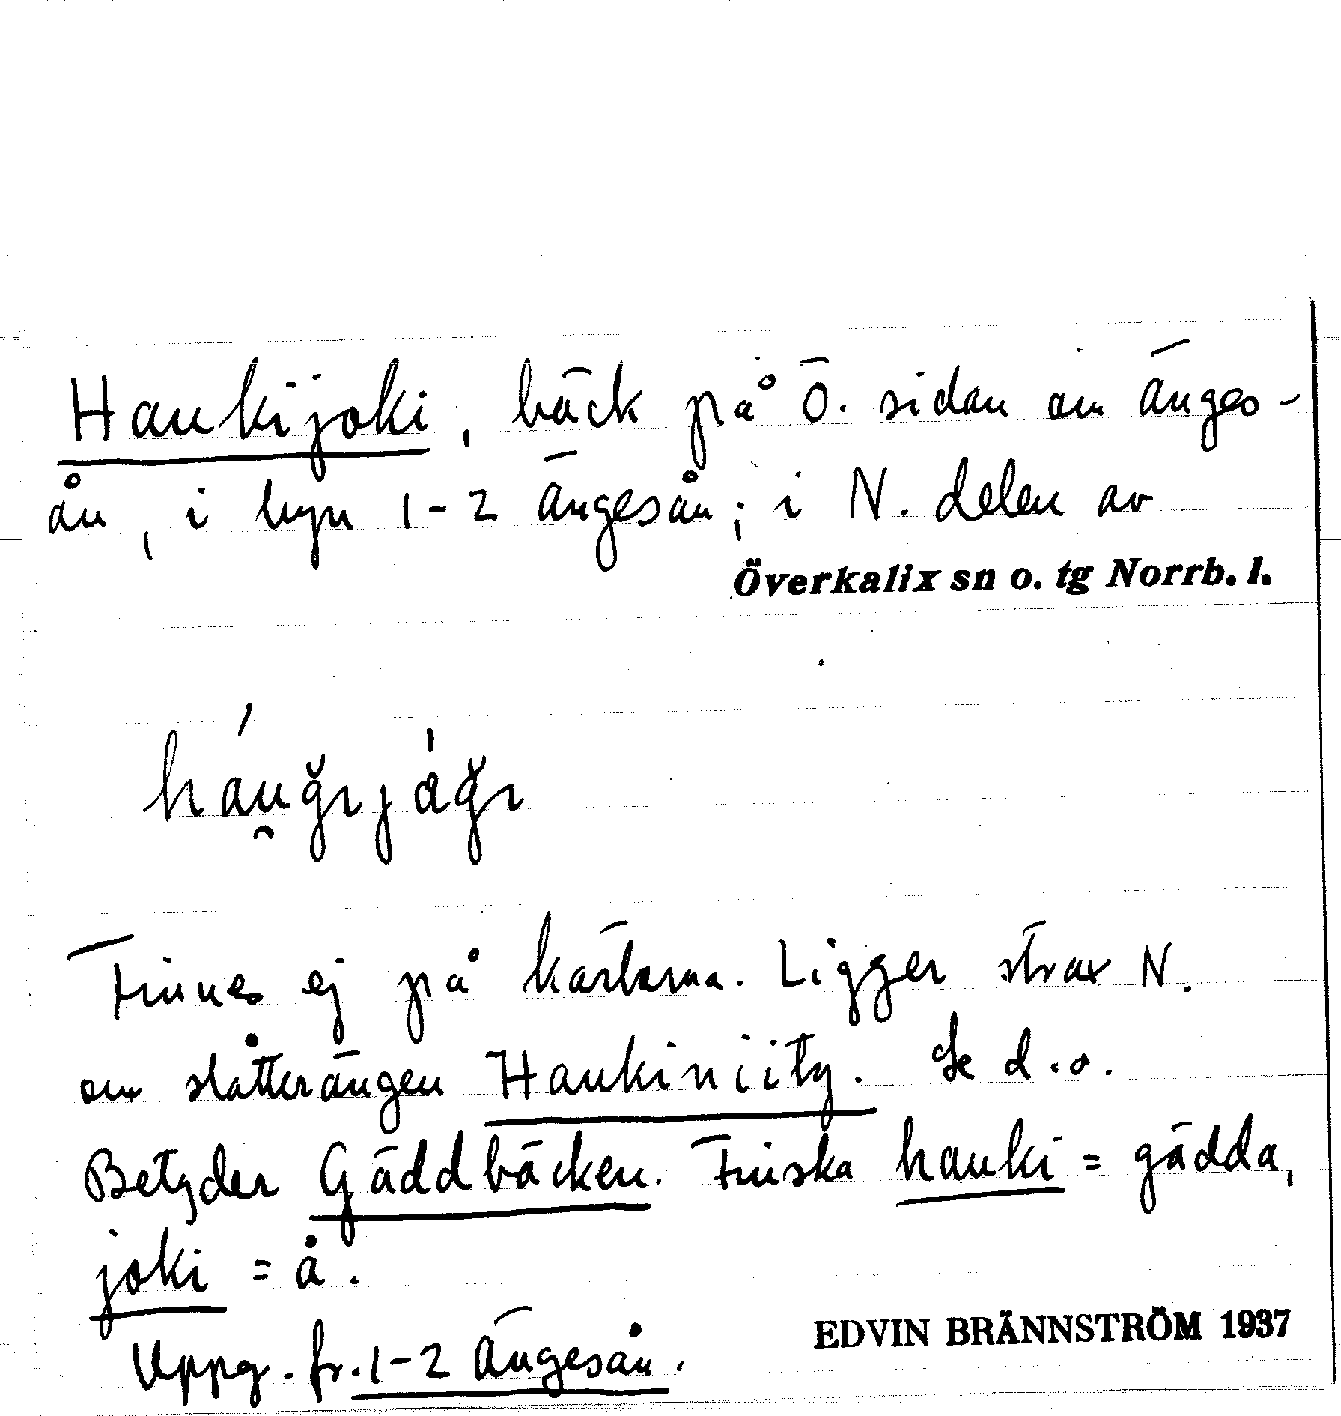 Haukijoki, bäck på Ö. sidan om Änges-
ån, i byn 1-2 Ängesån; i N. delen av
Överkalix sn o. tg Norrb. l.
háu̯ğıjáğı
Finnes ej på kartorna. Ligger strax N.
om slåtterängen Haukiniity. Se d.o.
Betyder Gäddbäcken. Finska hauki = gädda,
joki = å.
Uppg. fr. 1-2 Ängesån.
EDVIN BRÄNNSTRÖM 1937